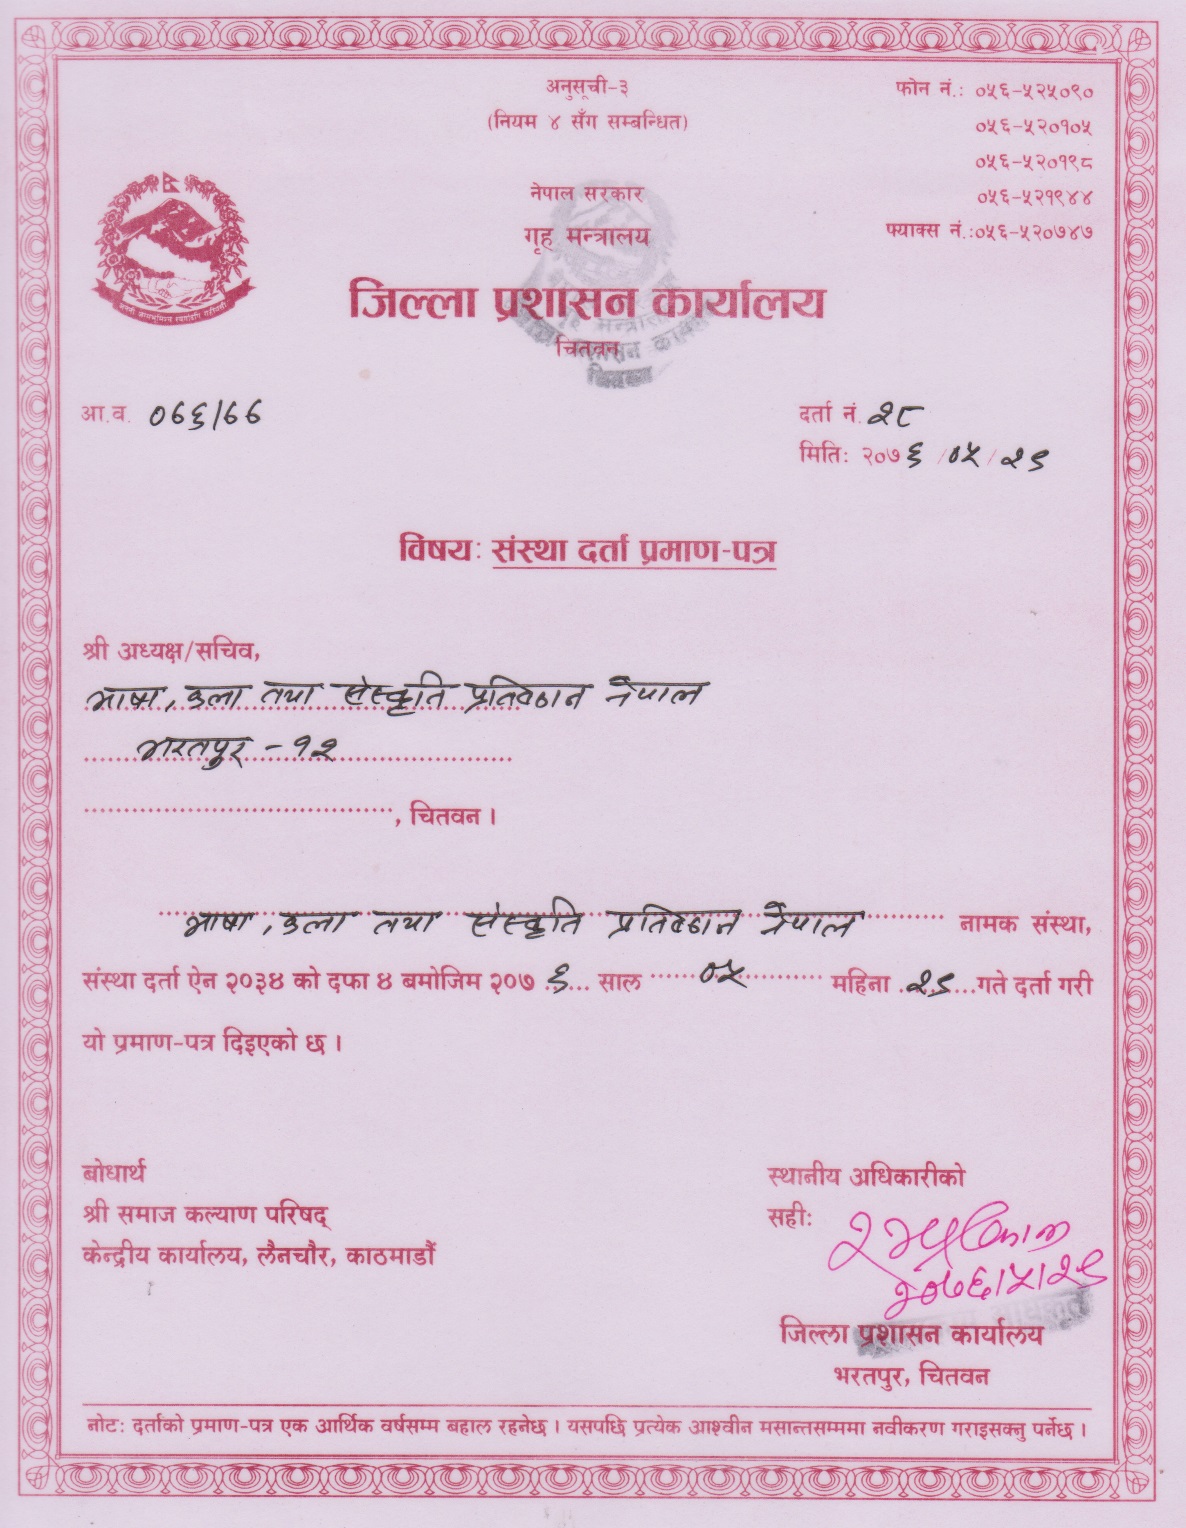 अनुसूची-३
(नियम ४ सँग सम्बन्धित)
फोन नं.: ०५६-५२५०९०
०५६-५२०१०५
०५६-५२०१९८
०५६-५२१९४४
फ्याक्स नं.:०५६-५२०७४७
नेपाल सरकार
गृह मन्त्रालय
जिल्ला प्रशासन कार्यालय
चितवन
आ.व. ०७६/७७
दर्ता नं. २८
मिति: २०७६/०५/२९
विषय: संस्था दर्ता प्रमाण-पत्र
श्री अध्यक्ष/सचिव,
भाषा, कला तथा संस्कृति प्रतिष्ठान नेपाल
भरतपुर - १२
, चितवन ।
भाषा, कला तथा संस्कृति प्रतिष्ठान नेपाल नामक संस्था,
संस्था दर्ता ऐन २०३४ को दफा ४ बमोजिम २०७६ साल ०५ महिना २९ गते दर्ता गरी
यो प्रमाण-पत्र दिइएको छ ।
बोधार्थ
श्री समाज कल्याण परिषद्
केन्द्रीय कार्यालय, लैनचौर, काठमाडौं
स्थानीय अधिकारीको
सही:
२०७६/५/२९
जिल्ला प्रशासन कार्यालय
भरतपुर, चितवन
नोट: दर्ताको प्रमाण-पत्र एक आर्थिक वर्षसम्म बहाल रहनेछ । यसपछि प्रत्येक आश्वीन मसान्तसम्ममा नवीकरण गराइसक्नु पर्नेछ ।